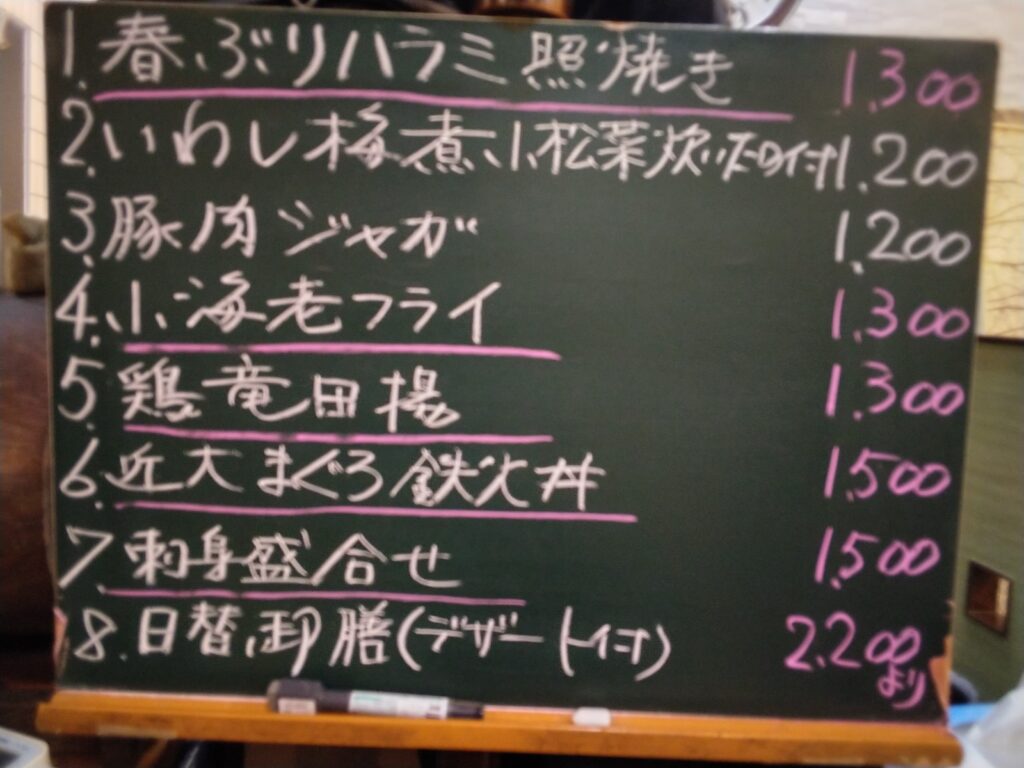 1.春ぶりハラミ照焼き 1.300
2.いわし梅煮、小松菜炊い 付 1.200
3.豚肉ジャガ 1.200
4.小海老フライ 1.300
5.鶏竜田揚 1.300
6.近大まぐろ鉄火丼 1.500
7.刺身盛合せ 1.500
8.日替御膳(デザート付) 2.200
より